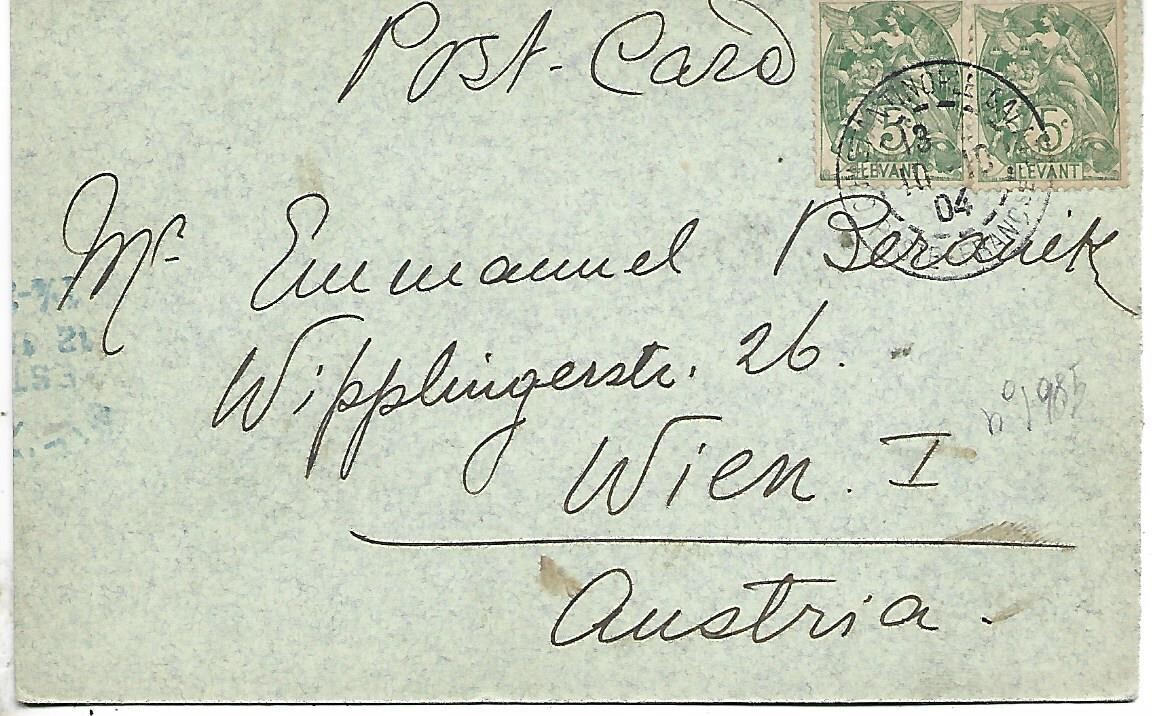 Post-Card
5c 5c
LEVANT LEVANT
13
10
04
Mr Emmanuel Beranek
Wipplingerstr. 26.
Wien. I
Austria.